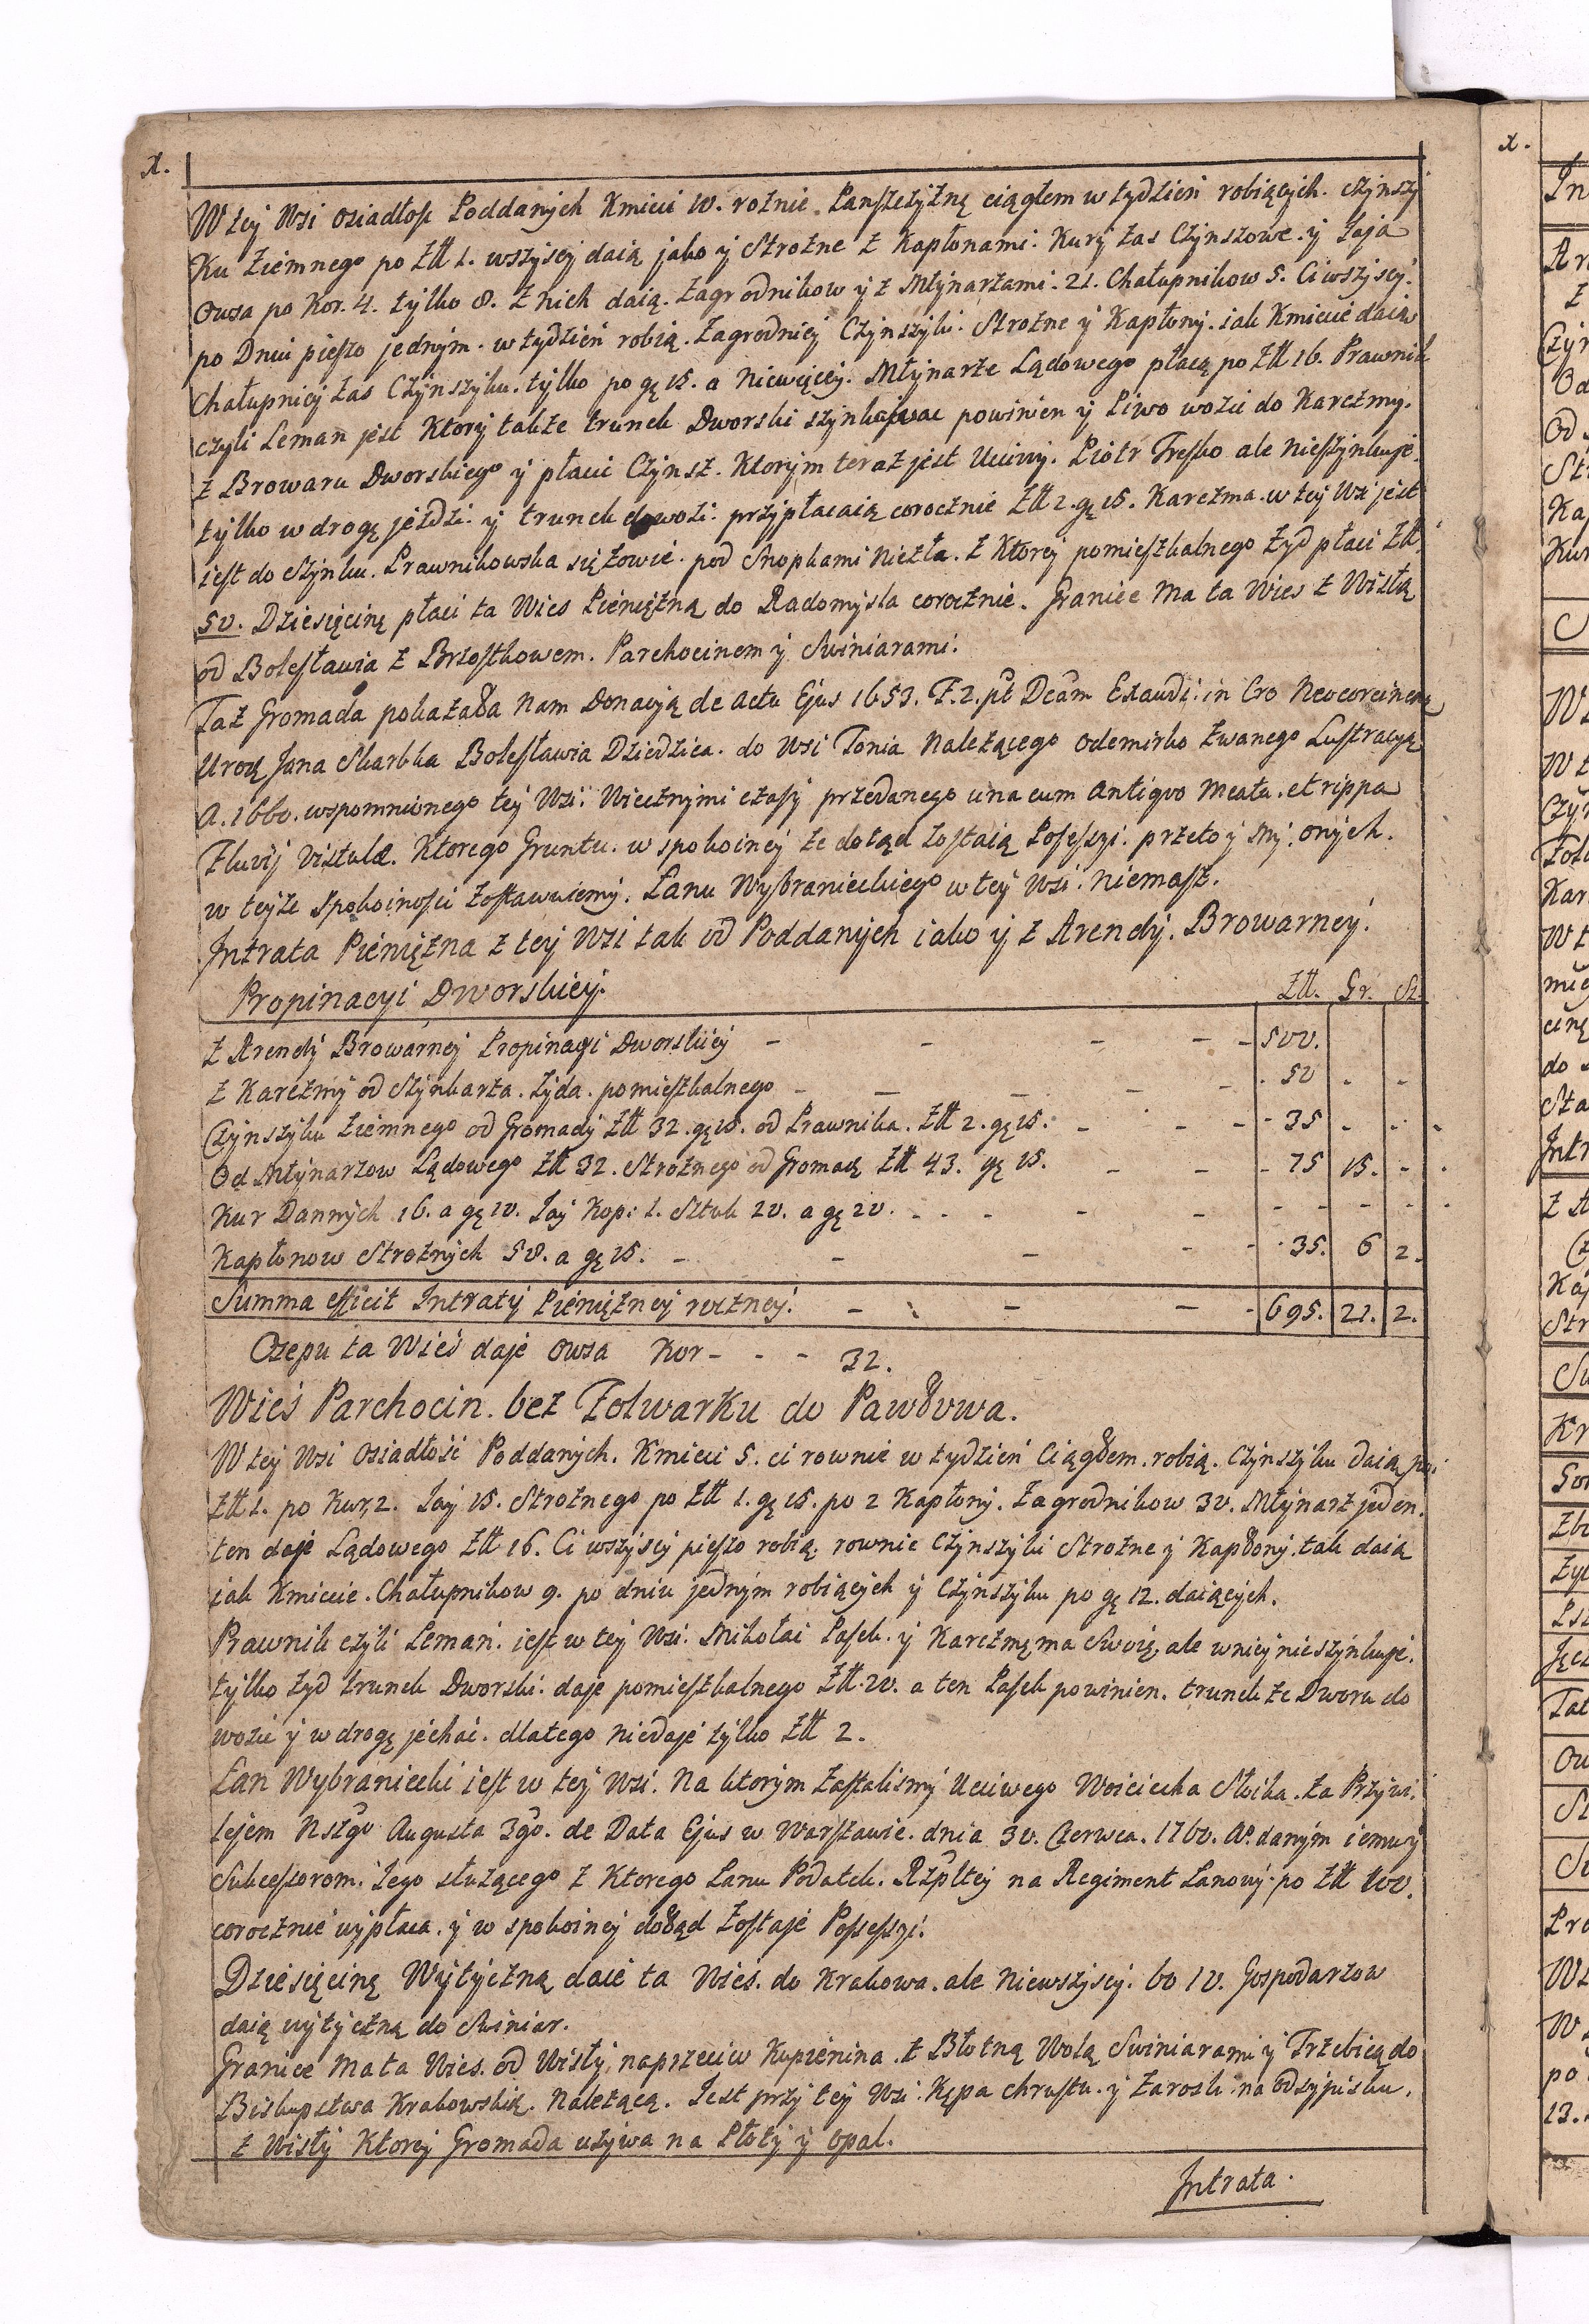 x.
W tey Wsi osiadłosc Poddanych Kmieci 10. rożnie Panszczyżną ciągłem w tydzień robiących. czynszy
Ku ziemnego po Złł 1. wszyscy daią jako y Strożne z Kapłonami. Kury zas Czynszowe y Jaja
Owsa po Kor. 4. tylko 8. z nich daią. Zagrodnikow y z Młynarzami. 21. Chałupnikow 5. Ci wszyscy
po Dniu pieszo jednym. w tydzień robią. Zagrodnicy Czynszyki. Strożne y Kapłony. iak Kmiecie daią
Chałupnicy zas Czynszyku. tylko po gę 15. a niewięcey. Młynarze Lądowego płacą po Złł 16. Prawnik
czyli Leman jest Ktory także trunek Dworski szynkować powinien y Piwo wozic do Karczmy.
z Browaru Dworskiego y płaci Czynsz. Ktorym teraz jest Ucciwy. Piotr Tresko ale nieszynkuje.
tylko w drogę jezdzi. y trunek dowozi. przypłacaią corocznie Złł 2. gę 15. Karczma. w tey Wsi jest
iest do szynku. Prawnikowska się zowie. pod Snopkami niezła. z Ktorey pomieszkalnego Żyd płaci Złł
50. Dziesięcinę płaci ta Wies Pieniężną do Radomysla corocznie. Granice ma ta Wies z Wisłą
od Bolesławia z Brzostkowem. Parchocinem y Swiniarami.
Taż Gromada pokazała nam Donacyą de actu Ejus 1653. F. 2. pt Dcam Exaudi. in Cro Neocorcinensi
Urodz Jana Skarbka Bolesławia Dziedzica. do Wsi Tonia należącego odemirko zwanego Lustracyą
A. 1660. wspomnionego tey Wsi. Wiecznymi czasy przedanego una cum antiqvo meatu. et rippa
Fluvij Vistulæ. Ktorego Gruntu. w spokoiney że dotąd zostaią Posessyi. przeto y my. onych.
w teyże spokoinosci zostawuiemy. Lanu Wybranieckiego w tey Wsi. niemasz.
Intrata Pieniężna z tey Wsi tak od Poddanych iako y z Arendy. Browarney.
Propinacyi Dworskiey. Złł. Gr. Sz.
Z Arendy Browarney Propinacyi Dworskiey - - - - - 500.
Z Karczmy od Szynkarza. Żyda. pomieszkalnego - - - - 50 - -
Czynszyku ziemnego od Gromady Złł 32. gę 15. od Prawnika. Złł 2. gę 15. - - - 35 - - -
Od Młynarzow Lądowego Złł 32. Strożnego od Gromady Złł 43. gę 15. - - - 75 15. - -
Kur Dannych 16. a gę 10. Jay Kop: 1. Sztuk 20. a gę 20. - - - - - - - - -
Kapłonow Strożnych 58. a gę 15. - - - - - 35. 6 2.
Summa efficit Intraty Pieniężney roczney. - - - - - 695. 21. 2.
Osepu ta Wieś daje Owsa Kor - - - 32.
Wieś Parchocin. bez Folwarku do Pawłowa.
W tey Wsi osiadłość Poddanych. Kmieci 5. ci rownie w tydzień ciągłem. robią. Czynszyku daią po
Złł 1. po Kur. 2. Jay 15. Strożnego po Złł 1. gę 15. po 2 Kapłony. Zagrodnikow 30. Młynarz jeden.
ten daje Lądowego Złł 16. Ci wszyscy pieszo robią. rownie Czynszyki Strożne y Kapłony. tak daią
iak Kmiecie. Chałupnikow 9. po dniu jednym robiących y Czynszyku po gę 12. daiących.
Prawnik czyli Leman. iest w tey Wsi. Mikołai Pasek. y Karczmę ma Swoię. ale w niey nieszynkuje.
tylko Żyd trunek Dworski. daje pomieszkalnego Złł. 20. a ten Pasek powinien. trunek ze Dworu do
wozic y w drogę jechać. dlatego niedaje tylko Złł 2.
Łan Wybraniecki iest w tey Wsi. Na ktorym zastalismy Ucciwego Woiciecha Słoika. za Przywi.
lejem Nsżgo Augusta 3go. de Data Ejus w Warszawie. dnia 30. Czerwca. 1760. Ao. danym iemu y
Sukcessorom. Jego służącego z Ktorego Lanu Podatek. Rzpltey na Regiment Lanowy. po Złł 100.
corocznie wypłaca. y w spokoiney dotąd zostaje Possessyi.
Dziesięcinę Wytyczną daie ta Wies. do Krakowa. ale niewszyscy. bo 10. Gospodarzow
daią wytyczną do Swiniar.
Granice ma ta Wies. od Wisły, naprzeciw Kupienina. z Błotną Wolą Swiniarami y Trzebicą do
Biskupstwa Krakowskię. Należącą. Jest przy tey Wsi. Kępa chrustu. y Zarosli na odsypisku.
z Wisły Ktorej Gromada używa na Płoty y opal.
Intrata.